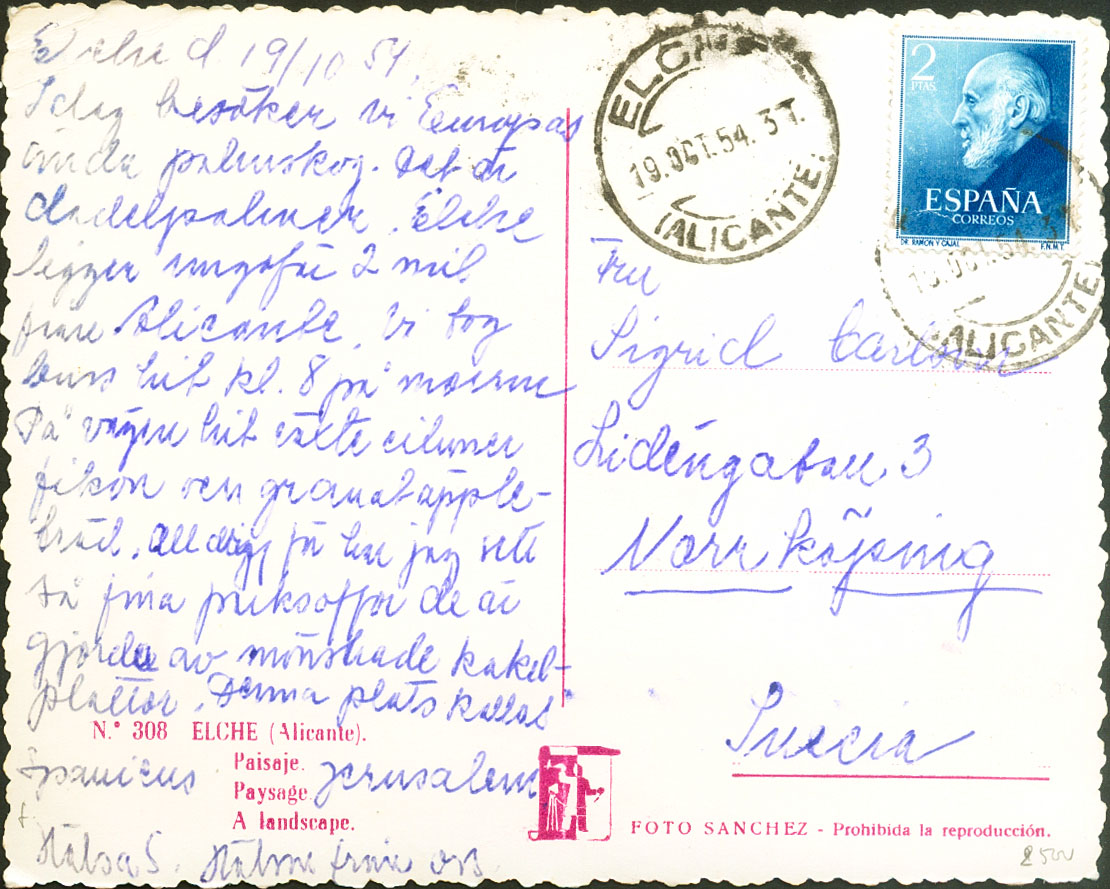 Elche d 19/10 54.
Idag besöker vi Europas
enda palmskog. Det är
dadelpalmer. Elche
ligger ungefär 2 mil
från Alicante. Vi tog
buss hit kl. 8 på
På vägen hit växte
fikon och granatäpple-
träd. Aldrig förr har jag sett
så fina de är
gjorda av mönstrade kakel-
plattor. Denna plats kallas
Spaniens Jerusalem
Hälsa S. Hälsn från oss
N.º 308 ELCHE (Alicante).
Paisaje.
Paysage.
A landscape.
ELCHE
19.OCT.54. 3T.
(ALICANTE)
2
PTAS
ESPAÑA
CORREOS
DR. RAMON Y CAJAL F.N.M.T.
19.OCT.54. 3T.
(ALICANTE)
Fru
Sigrid Carlsson
Lidéngatan 3
Norrköping
Suecia
FOTO SANCHEZ - Prohibida la reproducción.